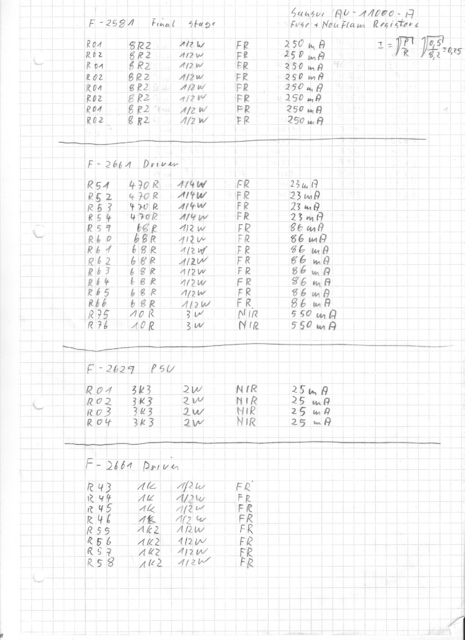 Sansui AU-11000-A
F-2581 Final Stage Fuse + Nonflam Registers
R01 8R2 1/2W FR 250mA I = √P/R √0,5/8,2 = 0,25
R02 8R2 1/2W FR 250mA
R01 8R2 1/2W FR 250mA
R02 8R2 1/2W FR 250mA
R01 8R2 1/2W FR 250mA
R02 8R2 1/2W FR 250mA
R01 8R2 1/2W FR 250mA
R02 8R2 1/2W FR 250mA
F-2661 Driver
R51 470R 1/4W FR 23mA
R52 470R 1/4W FR 23mA
R53 470R 1/4W FR 23mA
R54 470R 1/4W FR 23mA
R59 68R 1/2W FR 86mA
R60 68R 1/2W FR 86mA
R61 68R 1/2W FR 86mA
R62 68R 1/2W FR 86mA
R63 68R 1/2W FR 86mA
R64 68R 1/2W FR 86mA
R65 68R 1/2W FR 86mA
R66 68R 1/2W FR 86mA
R75 10R 3W NIR 550mA
R76 10R 3W NIR 550mA
F-2629 PSU
R01 3K3 2W NIR 25mA
R02 3K3 2W NIR 25mA
R03 3K3 2W NIR 25mA
R04 3K3 2W NIR 25mA
F-2661 Driver
R43 1K 1/2W FR
R44 1K 1/2W FR
R45 1K 1/2W FR
R46 1K 1/2W FR
R55 1K2 1/2W FR
R56 1K2 1/2W FR
R57 1K2 1/2W FR
R58 1K2 1/2W FR